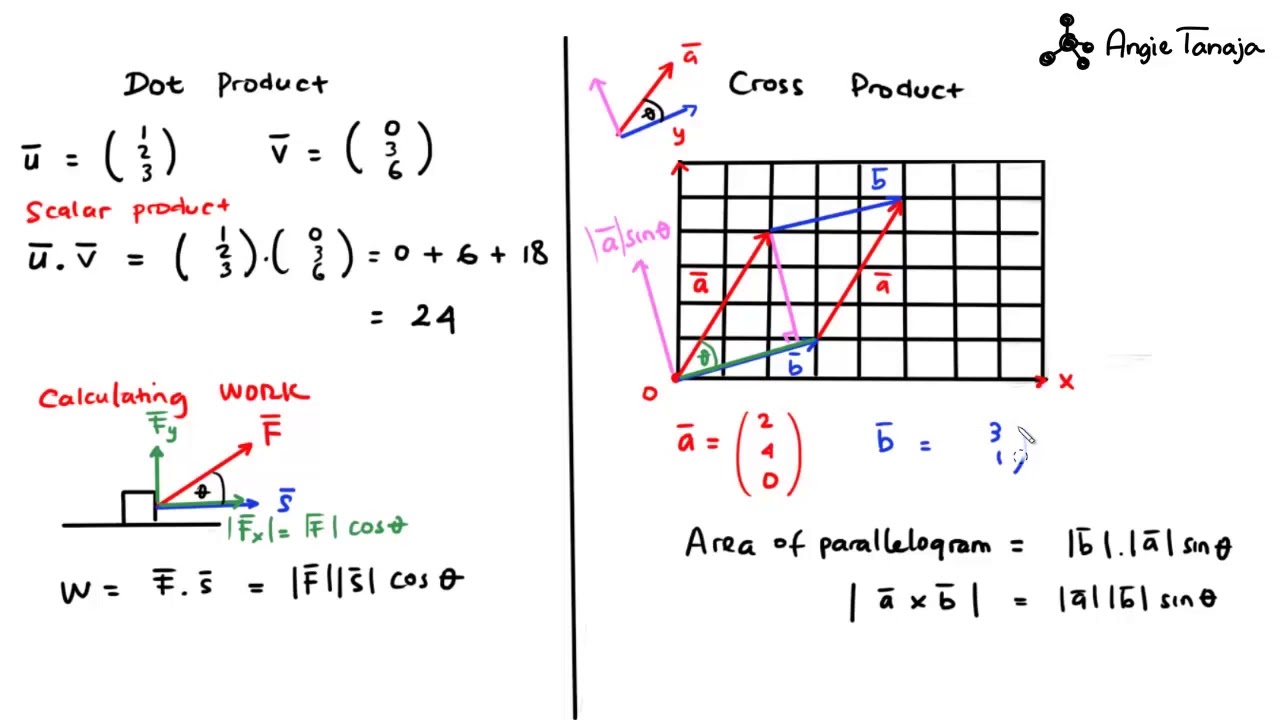 Angie Tanaja
Dot Product
u̅ = (1 2 3) v̅ = (0 3 6)
Scalar product
u̅ . v̅ = (1 2 3) . (0 3 6) = 0 + 6 + 18
= 24
Calculating WORK
F̅y
F̅
θ
s̅
|F̅x| = |F̅| cos θ
W = F̅ . s̅ = |F̅||s̅| cos θ
Cross Product
a̅
θ
y
b̅
|a̅| sin θ
a̅
a̅
θ
b̅
O
x
a̅ = (2 4 0) b̅ = 3 1
Area of parallelogram = |b̅| . |a̅| sin θ
| a̅ × b̅ | = |a̅||b̅| sin θ